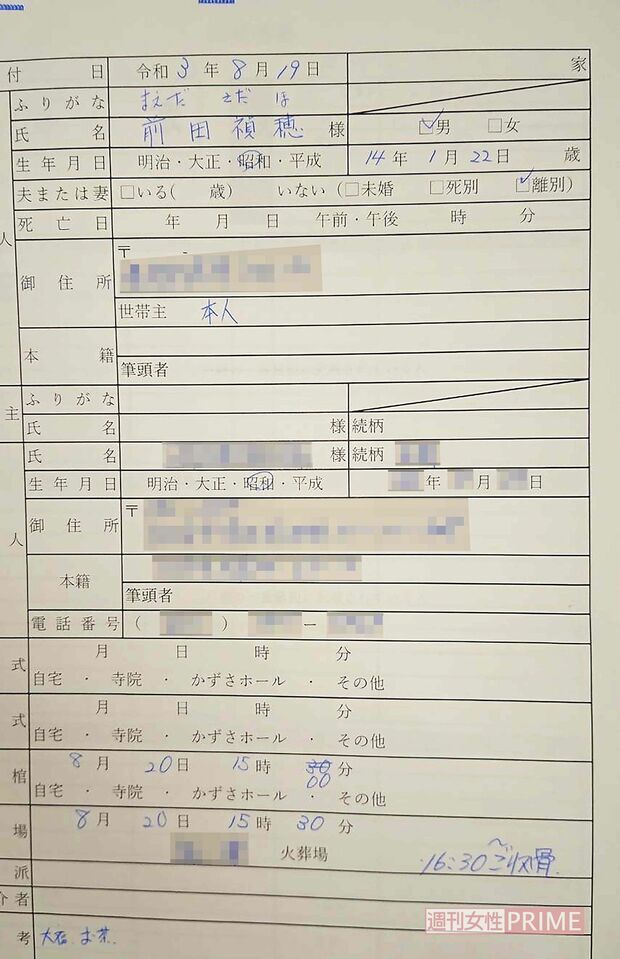 付 日 令和 3 年 8 月 19 日 家
ふりがな まえだ さだほ
氏 名 前田禎穂 様 ☑男 □女
生年月日 明治・大正・昭和・平成 14 年 1 月 22 日 歳
夫または妻 □いる( 歳) いない (□未婚 □死別 ☑離別)
人
死亡日 年 月 日 午前・午後 時 分
御住所 〒 -
世帯主 本人
本籍
筆頭者
主 ふりがな
氏 名 様 続柄
氏 名 様 続柄
生年月日 明治・大正・昭和・平成 年 月 日
人 御住所 〒
本籍
筆頭者
電話番号 ( ) −
式 月 日 時 分
自宅 ・ 寺院 ・ かずさホール ・ その他
式 月 日 時 分
自宅 ・ 寺院 ・ かずさホール ・ その他
棺 8 月 20 日 15 時 30 00 分
自宅 ・ 寺院 ・ かずさホール ・ その他
場 8 月 20 日 15 時 30 分
火葬場
派 16:30〜ご収骨
介者
考 お茶
週刊女性PRIME